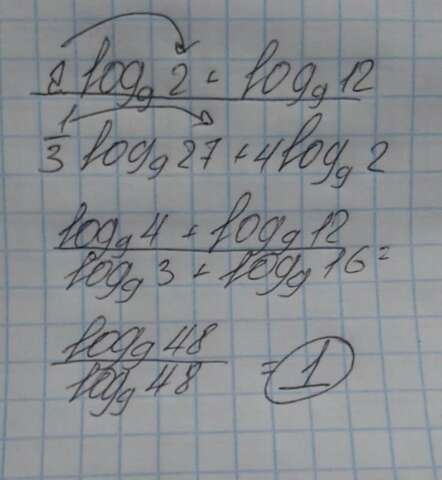 2 log₉ 2 + log₉ 12
1/3 log₉ 27 + 4 log₉ 2
log₉ 4 + log₉ 12
log₉ 3 + log₉ 16 =
log₉ 48
log₉ 48 = 1